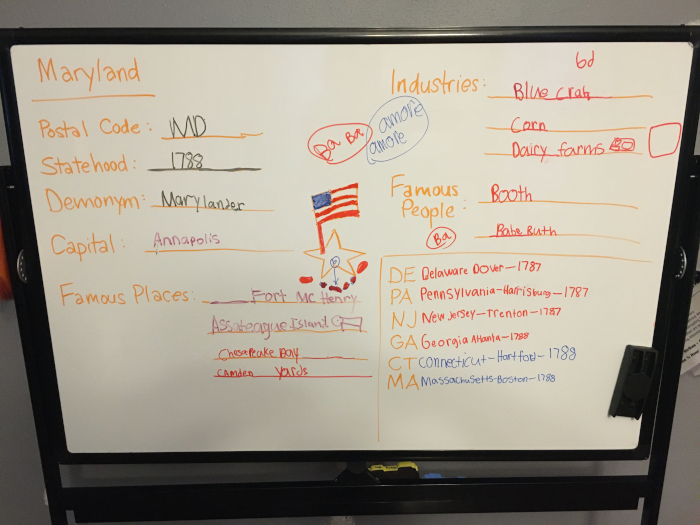 Maryland
Postal Code: MD
Statehood: 1788
Demonym: Marylander
Capital: Annapolis
Famous Places: Fort Mc Henry
Assateague Island
Chesapeake Bay
Camden Yards
Ba Ba
amore
amore
6d
Industries: Blue Crab
Corn
Dairy farms
Famous People: Booth
Ba
Babe Ruth
DE Delaware Dover-1787
PA Pennsylvania-Harrisburg-1787
NJ New Jersey-Trenton-1787
GA Georgia Atlanta-1788
CT Connecticut-Hartford-1788
MA Massachusetts-Boston-1788